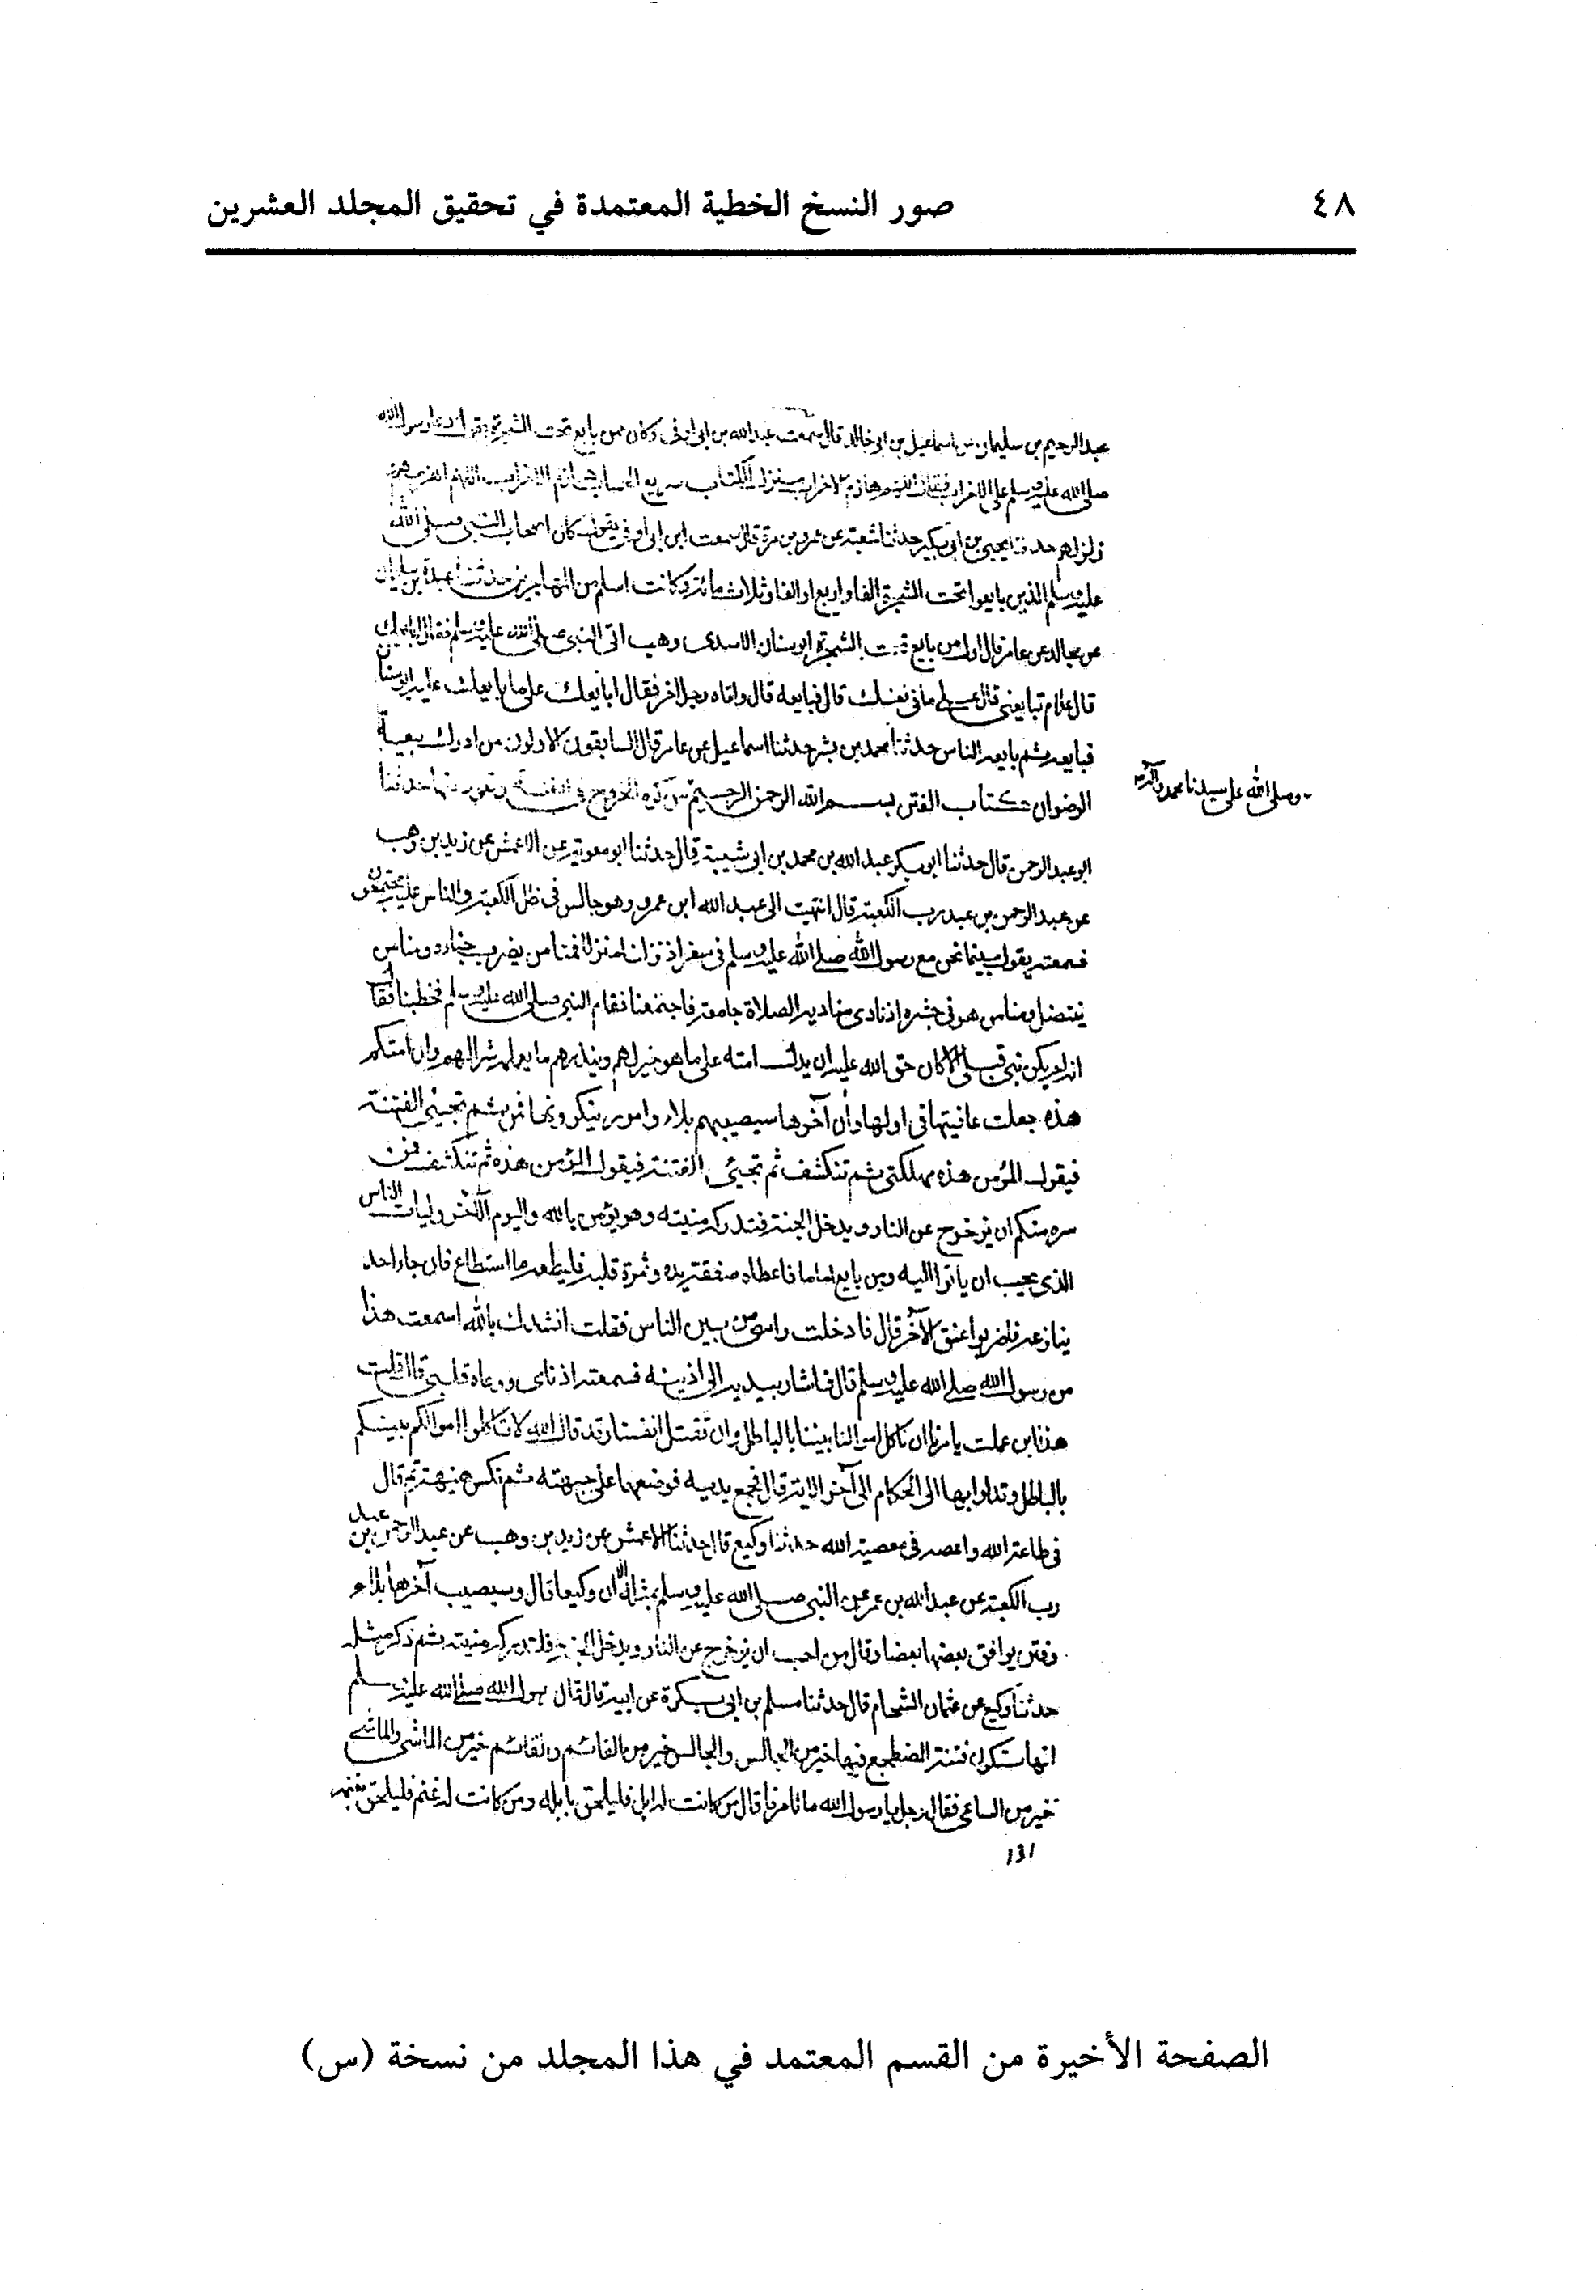 ٤٨
صور النسخ الخطية المعتمدة في تحقيق المجلد العشرين
عبدالرحيم بن سليمان عن اسماعيل بن ابي خالد قال سمعت عبد الله بن ابي اوفى وكان ممن بايع تحت الشجرة يقول دعا رسول الله
صلى الله عليه وسلم على الاحزاب فقال اللهم منزل الكتاب سريع الحساب هازم الاحزاب اللهم اهزمهم
زلزلهم حدثنا يحيى بن ابي بكير حدثنا شعبة عن عمرو بن مرة قال سمعت ابن ابي اوفى يقول كان اصحاب النبي صلى الله
عليه وسلم الذين بايعوا تحت الشجرة الفا واربع او الفا وثلاث مائة وكانت اسلم من المهاجرين حدثنا عبدة بن سليمان
عن مجالد عن عامر قال اول من بايع تحت الشجرة ابو سنان الاسدي وهب اتى النبي صلى الله عليه وسلم فقال ابايعك
قال علام تبايعني قال على ما في نفسك قال فبايعه قال واتاه رجل اخر فقال ابايعك على ما بايعك عليه ابو سنا
فبايعه ثم بايعه الناس حدثنا محمد بن بشر حدثنا اسماعيل عن عامر قال السابقون الاولون من ادرك بيعة
الرضوان كتاب الفتن بسم الله الرحمن الرحيم من كره الخروج في الفتنة وتعوذ منها حدثنا
وصلى الله على سيدنا محمد وآله
ابو عبد الرحمن قال حدثنا ابو بكر عبد الله بن محمد بن ابي شيبة قال حدثنا ابو معوية عن الاعمش عن زيد بن وهب
عن عبد الرحمن بن عبد رب الكعبة قال انتهيت الى عبد الله ابن عمرو وهو جالس في ظل الكعبة والناس عليه مجتمعون
فسمعته يقول بينما نحن مع رسول الله صلى الله عليه وسلم في سفر اذ نزلنا منزلا فمنا من يضرب خباءه ومنا من
ينتضل ومنا من هو في جشره إذ نادى مناديه الصلاة جامعة فاجتمعنا فقام النبي صلى الله عليه وسلم فخطبنا فقا
انه لم يكن نبي قبلي الا كان حق الله عليه ان يدل امته على ما هو خير لهم وينذرهم ما يعلمه شرا لهم وان امتكم
هذه جعلت عافيتها في اولها وأن آخرها سيصيبهم بلاء وامور ينكرونها فمن ثم تجيئ الفتنة
فيقول المؤمن هذه مهلكتي ثم تنكشف ثم تجيئ الفتنة فيقول المؤمن هذه ثم تنكشف فمن
سره منكم ان يزحزح عن النار ويدخل الجنة فتدركه منيته وهو يؤمن بالله واليوم الآخر وليات الناس
الذي يحب ان ياتوا اليه ومن بايع اماما فاعطاه صفقة يده وثمرة قلبه فليطعه ما استطاع فان جاء احد
ينازعه فاضربوا عنق الآخر قال فادخلت راسي من بين الناس فقلت انشدك بالله اسمعت هذا
من رسول الله صلى الله عليه وسلم قال فاشار بيديه الى اذنيه فسمعته اذناي ووعاه قلبي قال قلت
هذا ابن عمك يامرنا ان ناكل اموالنا بيننا بالباطل وان نقتل انفسنا وقد قال الله لا تاكلوا اموالكم بينكم
بالباطل وتدلوا بها الى الحكام الى آخر الاية قال فجمع يديه فوضعهما على جبهته ثم نكس هنيهة ثم قال
في طاعة الله واعصه في معصية الله حدثنا وكيع قال حدثنا الاعمش عن زيد بن وهب عن عبد الرحمن بن عبد
رب الكعبة عن عبد الله بن عمر عن النبي صلى الله عليه وسلم بمثله الا ان وكيعا قال وسيصيب آخرها بلاء
وفتن يوافق بعضها بعضا وقال من احب ان يزحزح عن النار ويدخل الجنة فلتدركه منيته ثم ذكر مثله
حدثنا وكيع عن عثمان الشحام قال حدثنا مسلم بن ابي بكرة عن ابيه قال قال رسول الله صلى الله عليه وسلم
انها ستكون فتنة المضطجع فيها خير من الجالس والجالس خير من القائم والقائم خير من الماشي والماشي
خير من الساعي فقال رجل يا رسول الله ما تامرنا قال من كانت له ابل فليلحق بابله ومن كانت له غنم فليلحق بغنمه
١٣١
الصفحة الأخيرة من القسم المعتمد في هذا المجلد من نسخة (س)